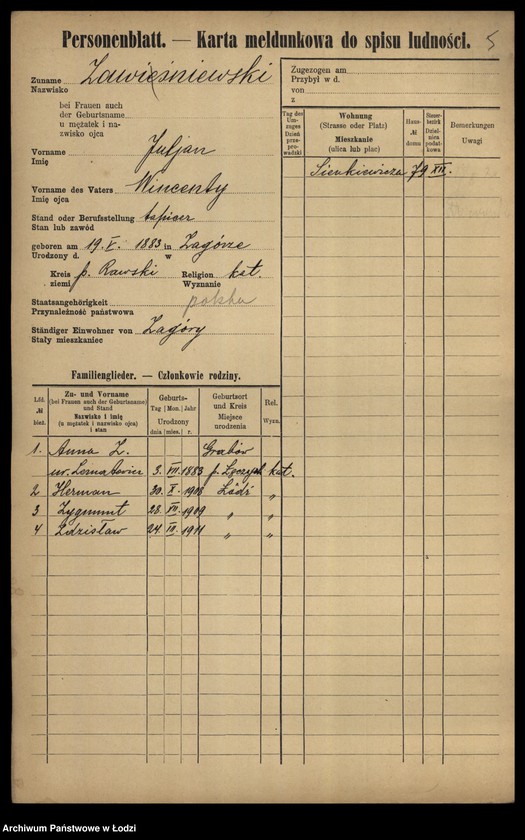 Personenblatt. — Karta meldunkowa do spisu ludności. 5
Zuname
Nazwisko
Zawieśniewski
bei Frauen auch
der Geburtsname
u mężatek i na-
zwisko ojca
Vorname
Imię
Juljan
Vorname des Vaters
Imię ojca
Wincenty
Stand oder Berufsstellung
Stan lub zawód
tapicer
geboren am 19. V. 1883 in Zagórze
Urodzony d. w
Kreis
ziemi
p. Rawski
Religion
Wyznanie
kat.
Staatsangehörigkeit
Przynależność państwowa
polska
Ständiger Einwohner von
Stały mieszkaniec
Zagóry
Zugezogen am
Przybył w d.
von
z
Tag des
Um-
zuges
Dzień
prze-
prowadzki
Wohnung
(Strasse oder Platz)
Mieszkanie
(ulica lub plac)
Haus-
№
domu
Steuer-
bezirk
Dziel-
nica
podat-
kowa
Bemerkungen
Uwagi
Sienkiewicza 79 XII.
Familienglieder. — Członkowie rodziny.
Lfd.
№
bież.
Zu- und Vorname
(bei Frauen auch der Geburtsname)
und Stand
Nazwisko i imię
(u mężatek i nazwisko ojca)
i stan
Geburts-
Tag Mon. Jahr
Urodzony
dnia mies. r.
Geburtsort
und Kreis
Miejsce
urodzenia
Rel.
Wyzn.
1. Anna Z. Grabów
ur. 3. VII. 1883 p. Łęczyck kat.
2 Herman 30. X. 1908 Łódź „
3 Zygmunt 28. VII. 1909 „ „
4 Zdzisław 24. III. 1911 „ „
Archiwum Państwowe w Łodzi